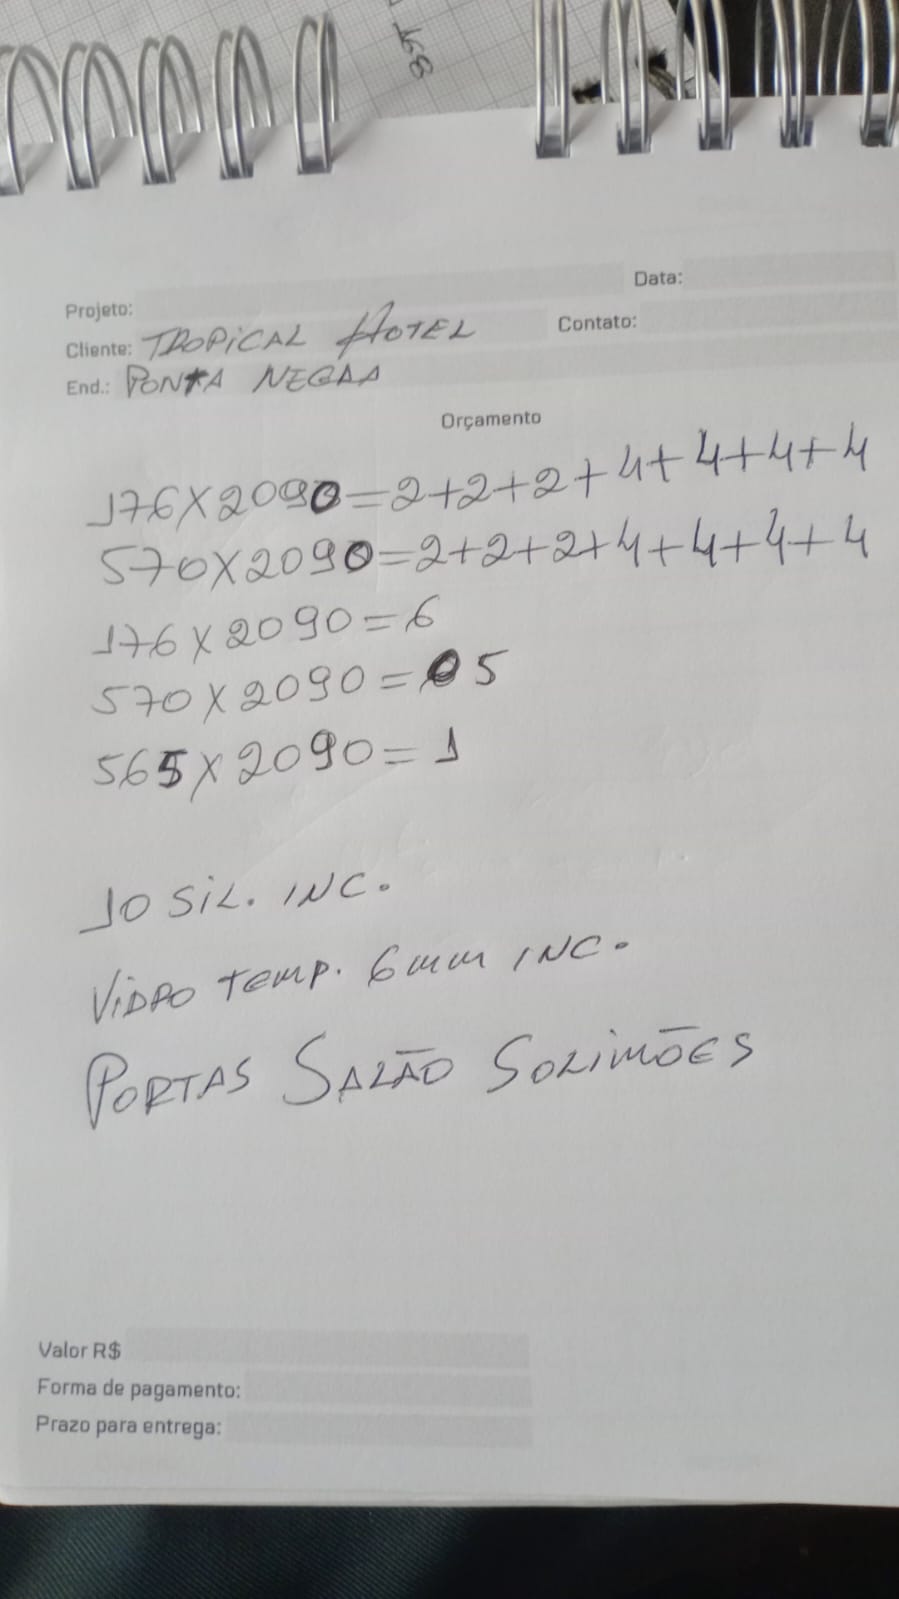 Projeto:
Data:
Cliente: TROPICAL HOTEL
Contato:
End.: PONTA NEGRA
Orçamento
176X2090=2+2+2+4+4+4+4
570X2090=2+2+2+4+4+4+4
176X2090=6
570X2090=5
565X2090=1
10 SIL. INC.
VIDRO TEMP. 6mm INC.
PORTAS SALÃO SOLIMÕES
Valor R$
Forma de pagamento:
Prazo para entrega: